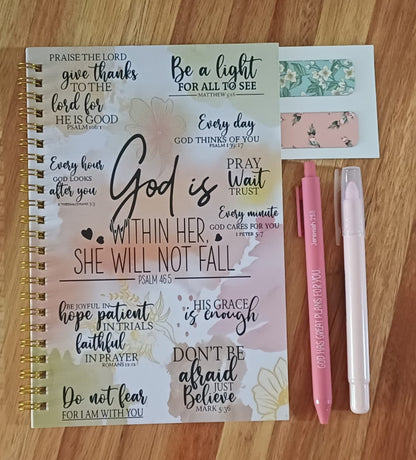 PRAISE THE LORD
give thanks
to the
lord for
HE IS GOOD
PSALM 106:1
Be a light
FOR ALL TO SEE
MATTHEW 5:16
Every day
GOD THINKS OF YOU
PSALM 139:17
Every hour
GOD LOOKS
after you
2 THESSALONIANS 3:3
PRAY
Wait
TRUST
God is
WITHIN HER,
SHE WILL NOT FALL
PSALM 46:5
Every minute
GOD CARES FOR YOU
1 PETER 5:7
BE JOYFUL IN
hope patient
IN TRIALS
faithful
IN PRAYER
ROMANS 12:12
HIS GRACE
is enough
DON'T BE
afraid
JUST
Believe
MARK 5:36
Do not fear
FOR I AM WITH YOU
GOD HAS GREAT PLANS FOR YOU
Jeremiah 29:11